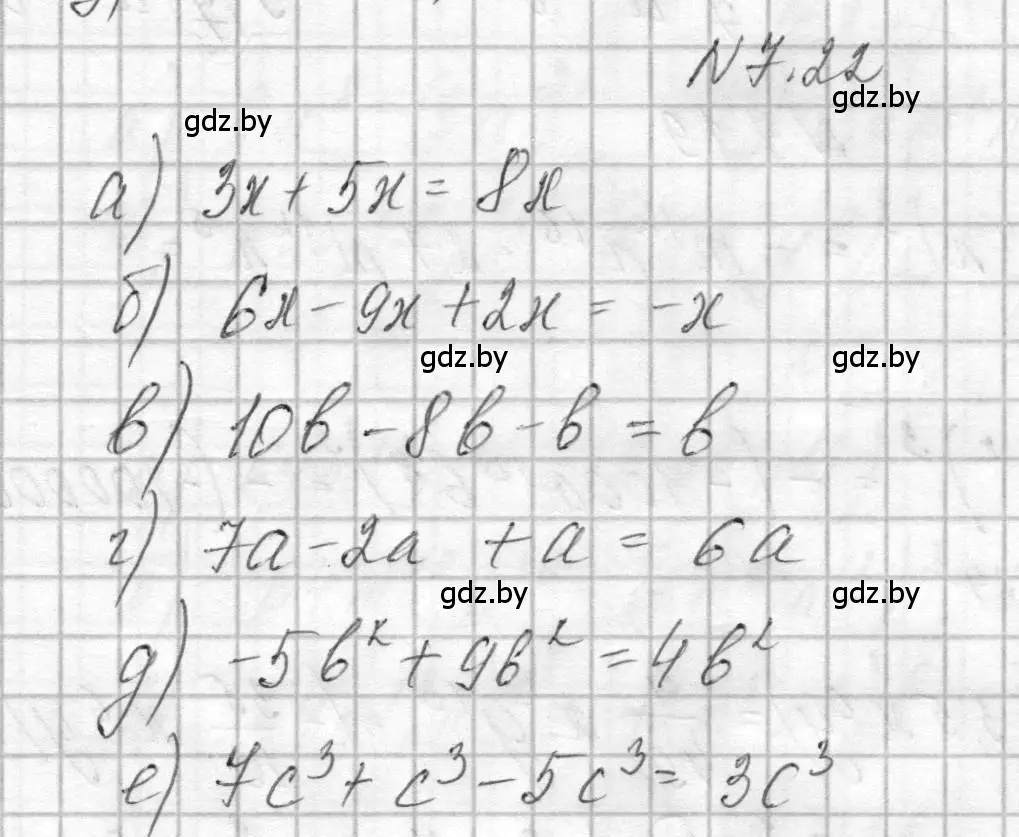 N 7.22
gdz.by
gdz.by
а) 3x + 5x = 8x
б) 6x - 9x + 2x = -x
gdz.by
gdz.by
в) 10b - 8b - b = b
г) 7a - 2a + a = 6a
gdz.by
gdz.by
д) -5b² + 9b² = 4b²
е) 7c³ + c³ - 5c³ = 3c³